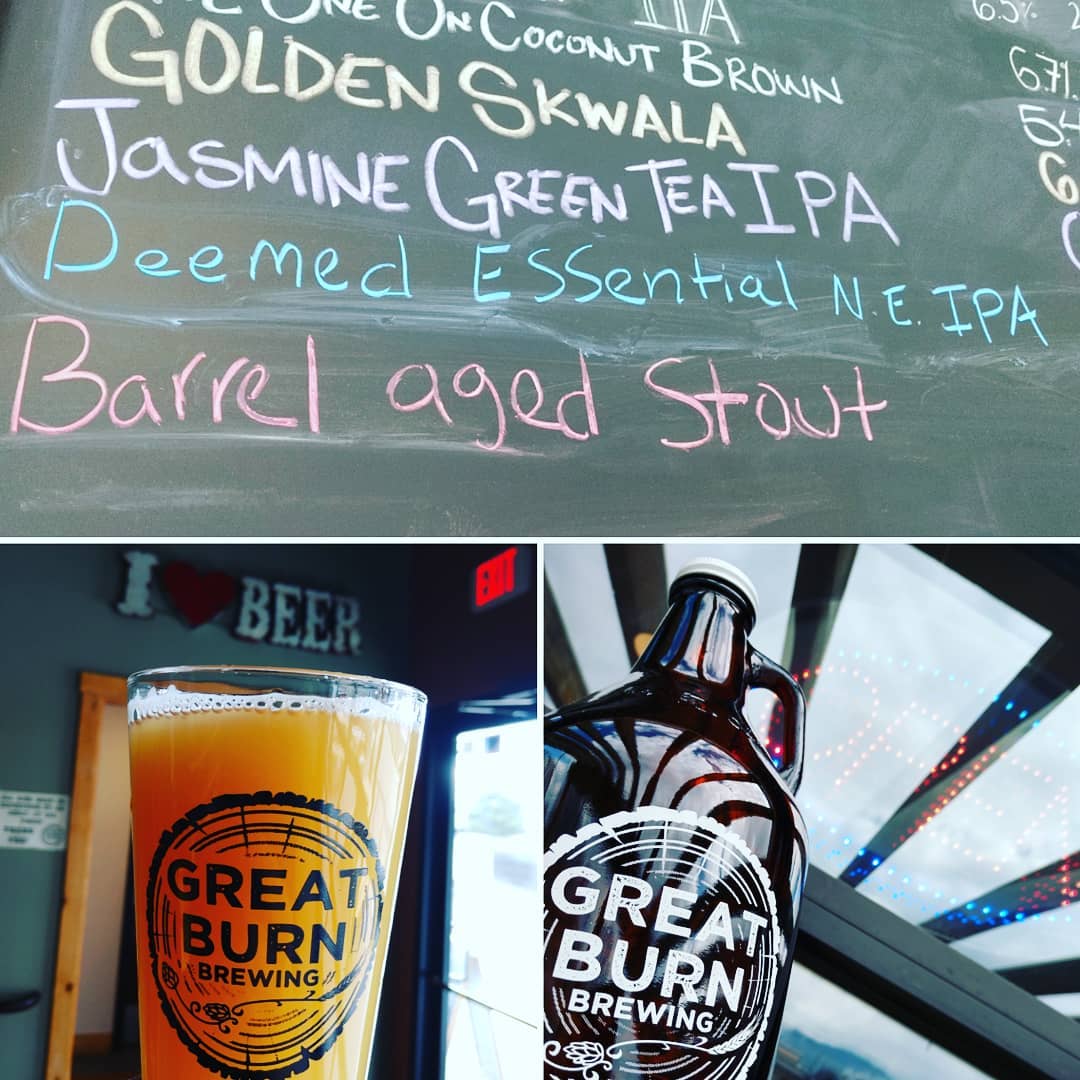 ONE ON COCONUT BROWN
IPA
6.5%
GOLDEN SKWALA
6.7%
JASMINE GREEN TEA IPA
Deemed Essential N.E. IPA
Barrel aged Stout
I ❤ BEER
EXIT
GREAT
BURN
BREWING
GREAT
BURN
BREWING